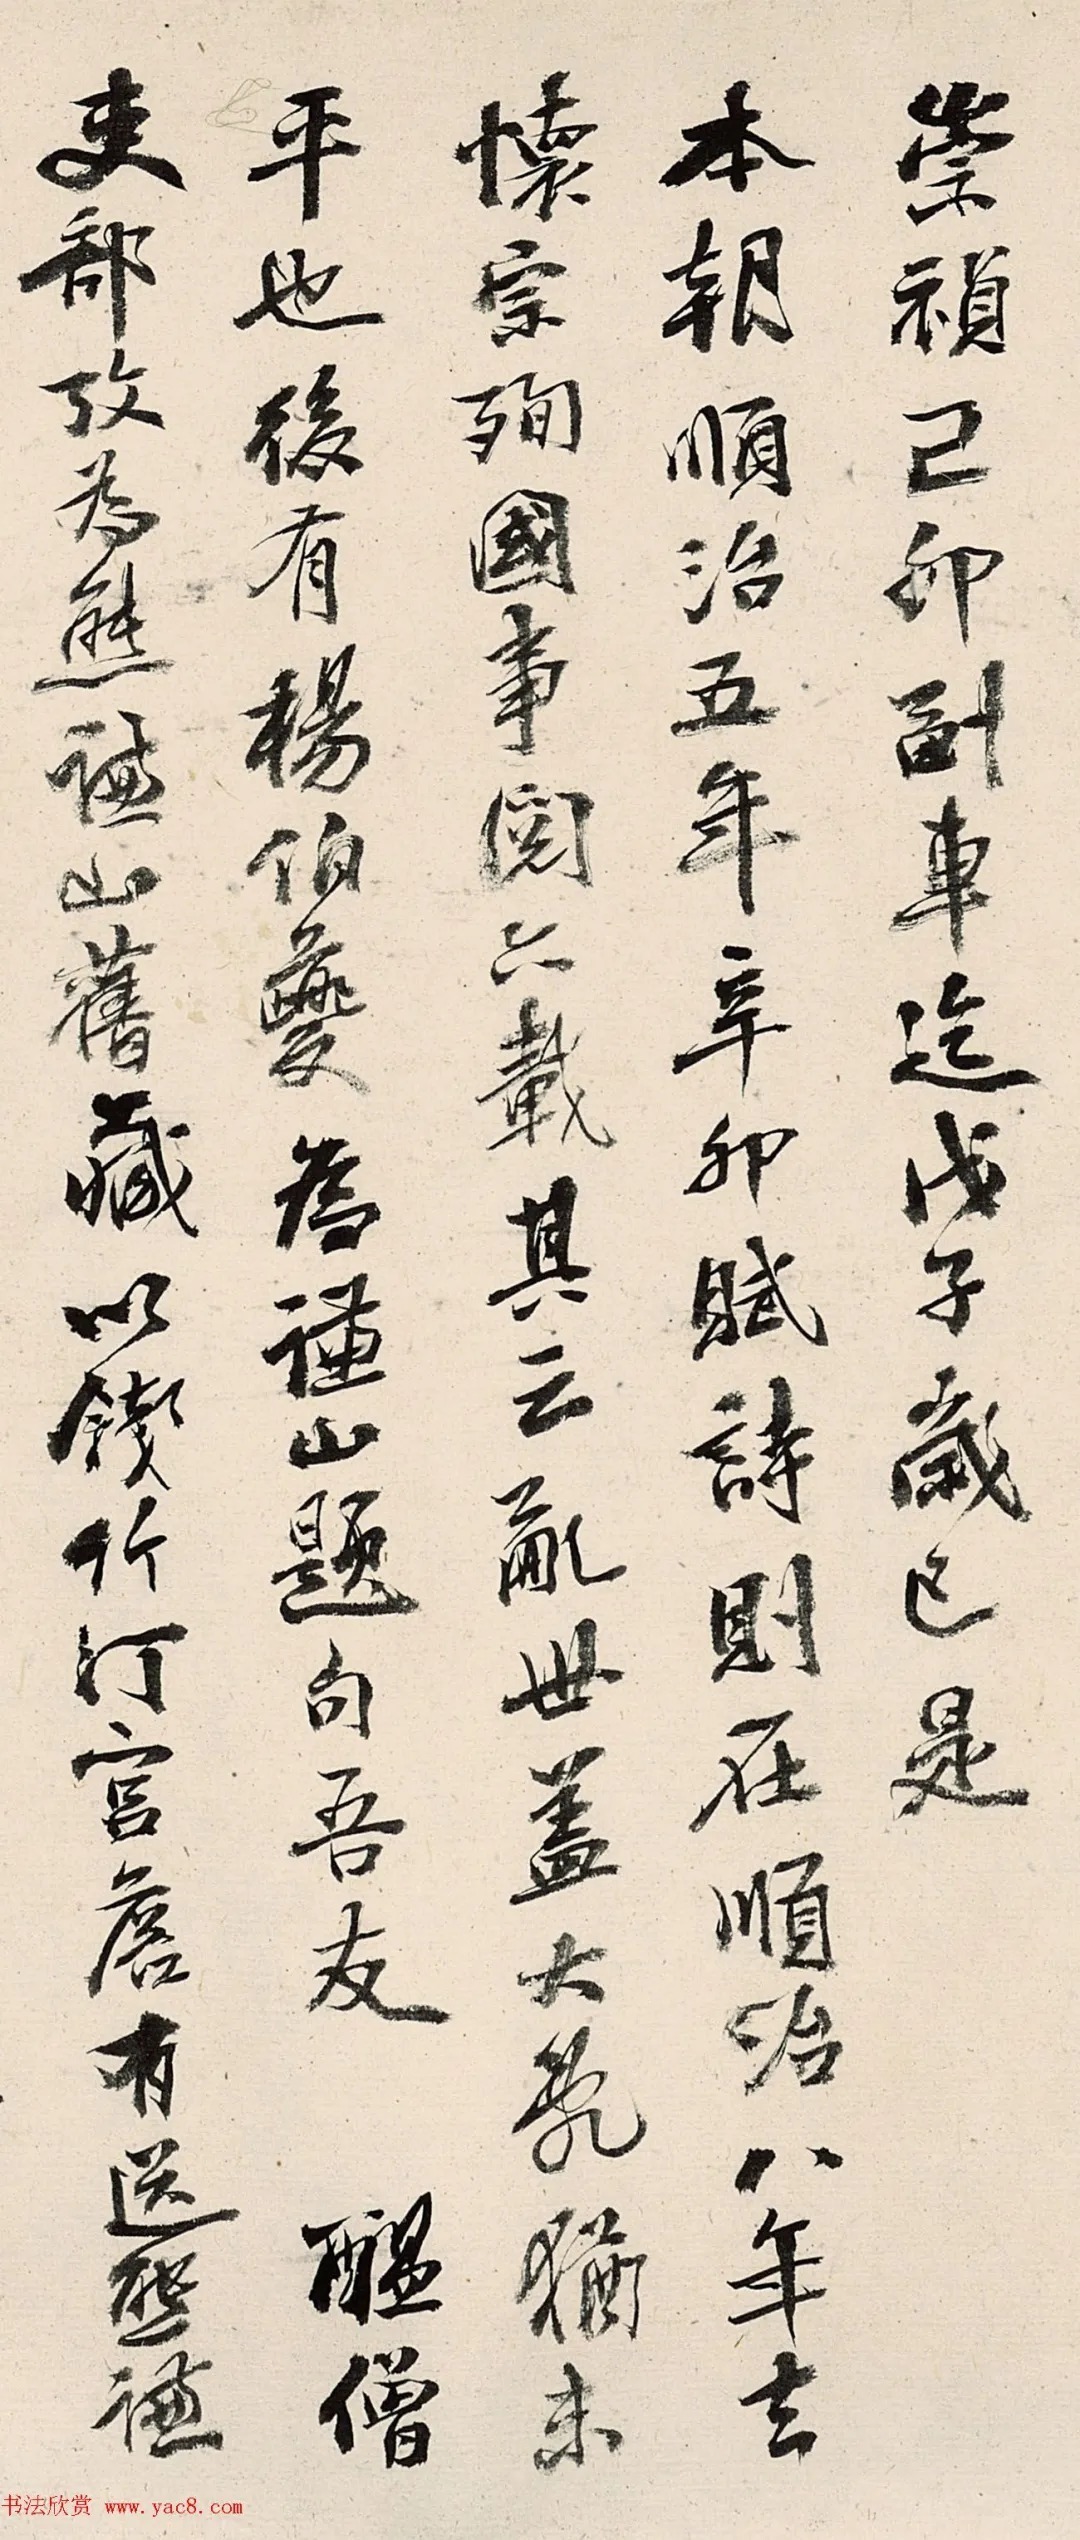 崇禎己卯副車迄戊子歲已是
本朝順治五年辛卯賦詩則在順治八年去
懷宗殉國事閱六載其云亂世蓋大亂猶未
平也後有楊伯夔為謹山題句吾友 醖僧
吏部攷為熊謙山舊藏以錢竹汀宮詹有送熊謙
书法欣赏 www.yac8.com